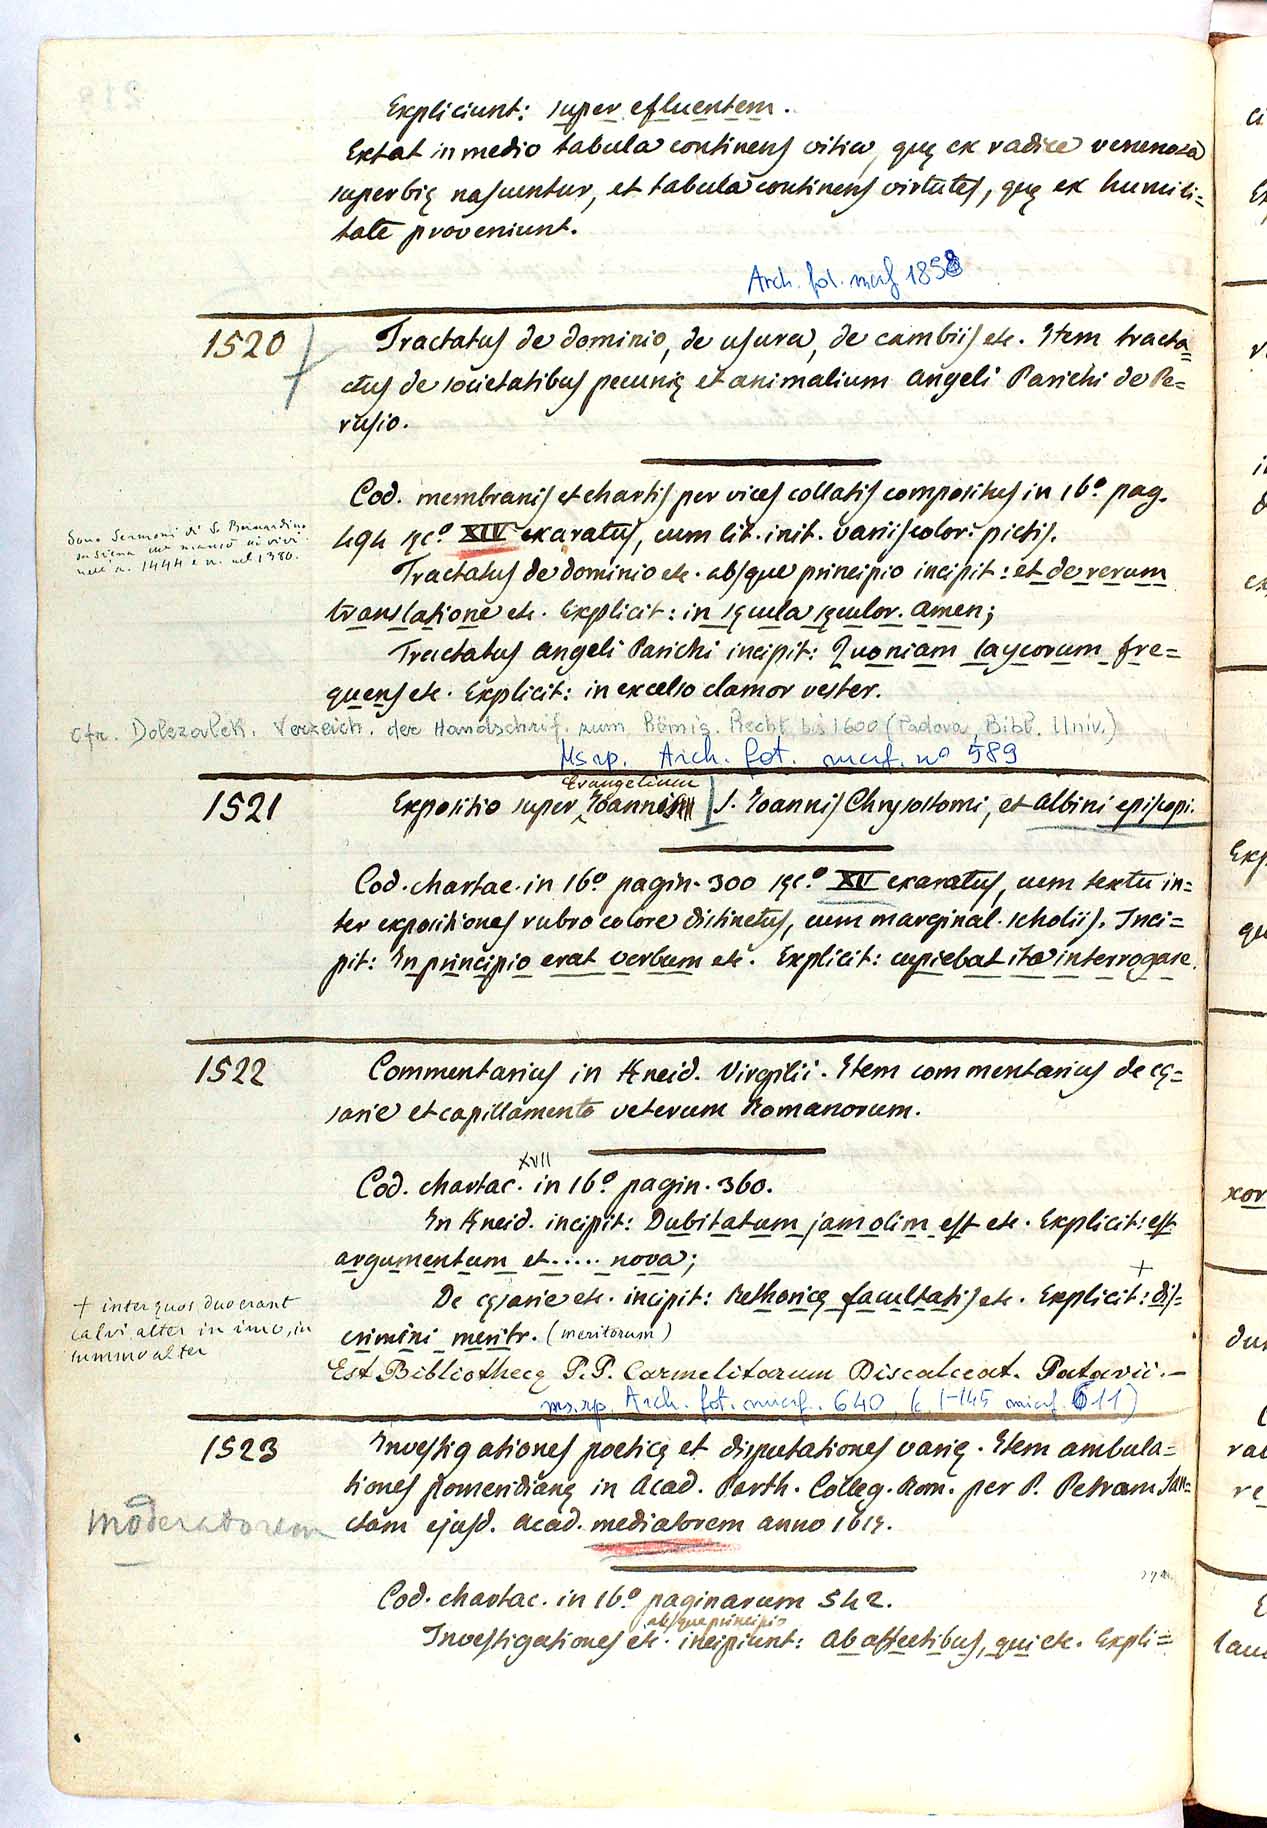 Expliciunt: super efluentem.
Extat in medio tabula continens vitia, quę ex radice venenosa
superbię nascuntur, et tabula continens virtutes, quę ex humili=
tate proveniunt.
Arch. fot. micf 1858
1520 Tractatus de dominio, de usura, de cambiis etc. Item tracta=
tus de societatibus pecunię et animalium Angeli Parichi de Pe=
rusio.
Cod. membranis et chartis per vices collatis compositus in 16.º pag.
494 sęc.º XIV exaratus, cum lit. init. variis color. pictis.
Sono Sermoni di S. Bernardino
da Siena che mancò ai vivi
nell'a. 1444 e n. nel 1380.
Tractatus de dominio etc. absque principio incipit: et de rerum
translatione etc. Explicit: in sęcula sęculor. amen;
Tractatus Angeli Parichi incipit: Quoniam laycorum fre=
quens etc. Explicit: in excelso clamor vester.
Cfr. Dolezalek. Verzeich. der Handschrif. zum Römis. Recht bis 1600 (Padova, Bibl. Univ.)
Ms rp. Arch. fot. micf. nº 589
Evangelium
1521 Expositio super Joannis S. Joannis Chrysostomi, et Albini episcopi.
Cod. chartac. in 16.º pagin. 300 sęc.º XV exaratus, cum textu in=
ter expositiones rubro colore distinctus, cum marginal. scholiis. Inci=
pit: In principio erat verbum etc. Explicit: cupiebat ita interrogare.
1522 Commentarius in Æneid. Virgilii. Item commentarius de cę=
sarie et capillamento veterum Romanorum.
XVII
Cod. chartac. in 16.º pagin. 360.
In Æneid. incipit: Dubitatum jam olim est etc. Explicit: est
argumentum et..... nova;
+
De cęsarie etc. incipit: Rethoricę facultatis etc. Explicit: dis=
crimini meritr. (meritorum)
+ inter quos duo erant
calvi alter in imo, in
summo alter
Est Bibliothecę P.P. Carmelitarum Discalceat. Patavii.—
ms. rp. Arch. fot. micf. 640, (c. 1-145 micf. 611)
1523 Investigationes poeticę et disputationes varię. Item ambula=
tiones pomeridianę in Acad. Parth. Colleg. Rom. per P. Petram San=
ctam ejusd. Acad. mediatorem anno 1619.
moderatorem
Cod. chartac. in 16.º paginarum 542.
absque principio
Investigationes etc. incipiunt: Ab affectibus, qui etc. Expli=